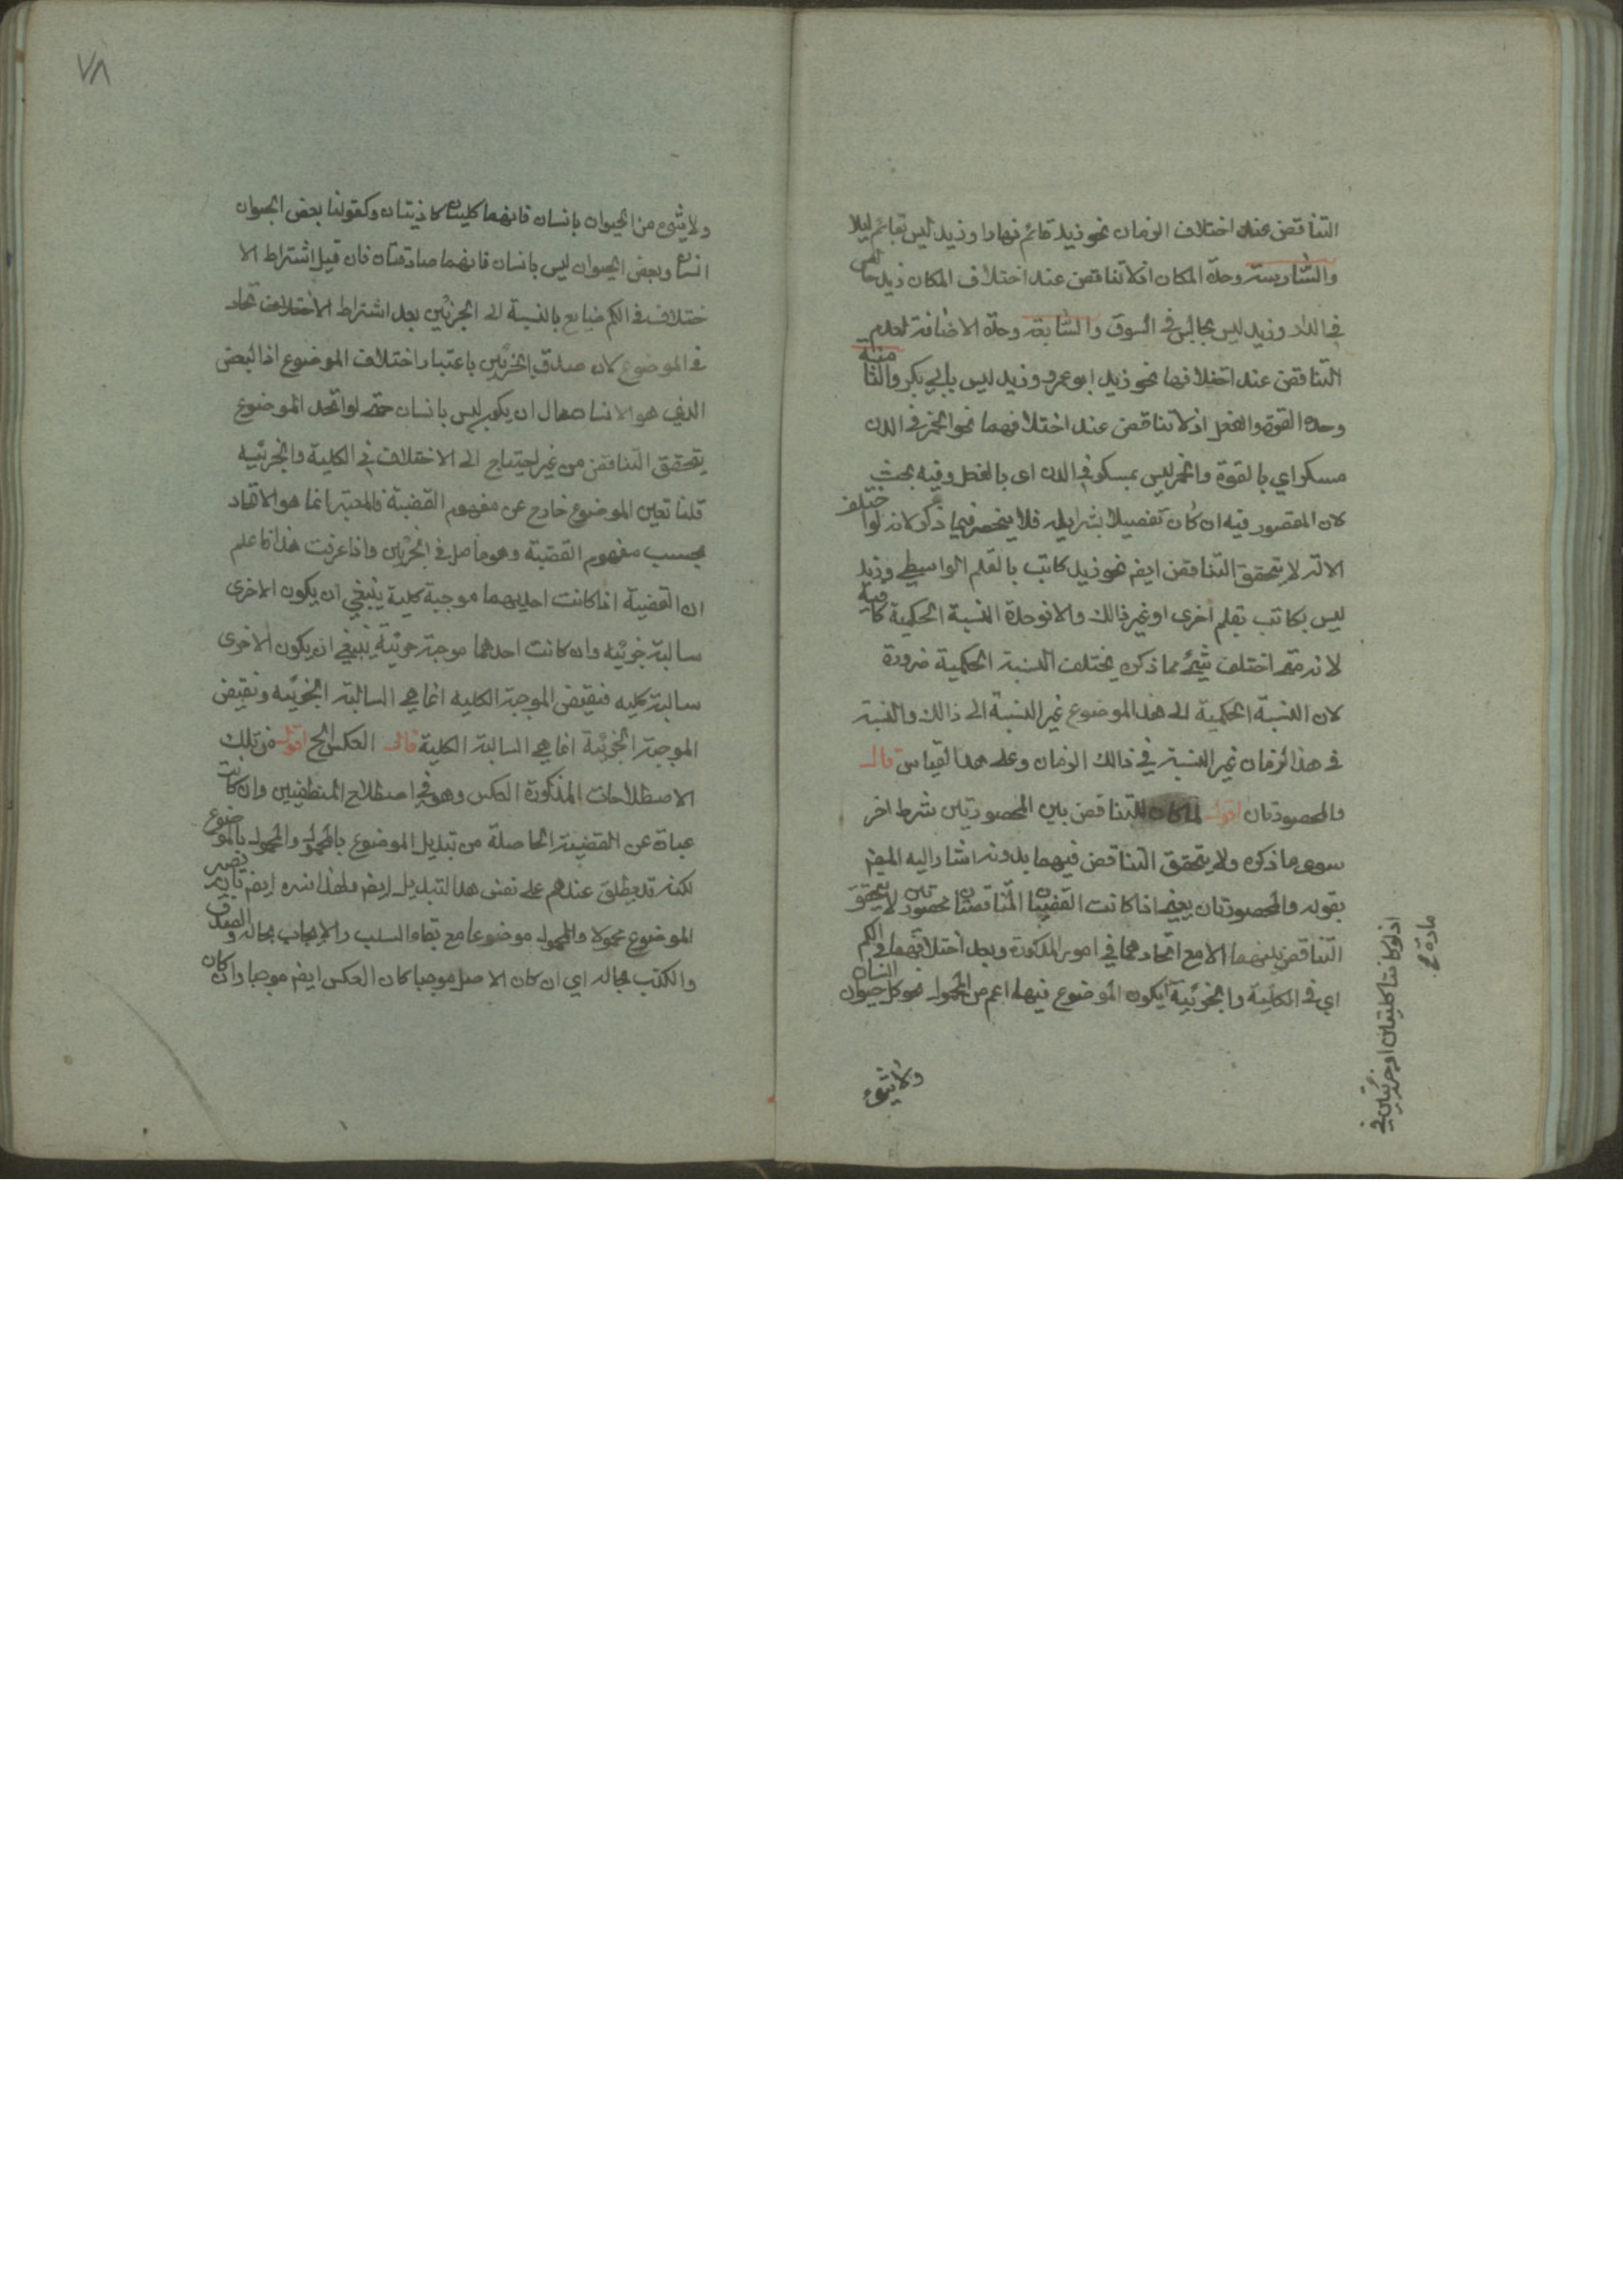 التناقض عند اختلاف الزمان نحو زيد قائم نهارا وزيد ليس بقائم ليلا
والسادسة وحدة المكان اذ لا تناقض عند اختلاف المكان زيد جالس
في الدار وزيد ليس بجالس في السوق والسابعة وحدة الاضافة لعدم
التناقض عند اختلافها نحو زيد ابو عمرو وزيد ليس بابي بكر والثامنة
وحدة القوة والفعل اذ لا تناقض عند اختلافهما نحو الخمر في الدن
مسكر اي بالقوة والخمر ليس بمسكر في الدن اى بالفعل وفيه بحث
لان المقصود فيه ان كان تفصيلا بشرايطه فلا ينحصر فيما ذكر لانه لو اختلف
الالة لا يتحقق التناقض ايضم نحو زيد كاتب بالقلم الواسطي وزيد
ليس بكاتب بقلم أخرى او غير ذالك والا فوحدة النسبة الحكمية كافية
لانه متى اختلف شئ مما ذكره يختلف النسبة الحكمية ضرورة
لان النسبة الحكمية الى هذا الموضوع غير النسبة الى ذالك والنسبة
في هذا الزمان غير النسبة في ذالك الزمان وعلى هذا القياس قال
والمحصورتان اقول لما كان للتناقض بين المحصورتين شرط اخر
سوى ما ذكره ولا يتحقق التناقض فيهما بدونه اشار اليه المصم
بقوله والمحصورتان يعنى اذا كانت القضيتان المتناقضتان محصورتين لا يتحقق
التناقض بينهما الا مع اتحادهما في امور المذكورة وبعد اختلافهما في الكم
اي في الكلية والجزئية يكون الموضوع فيها اعم من المحمول نحو كل حيوان انسان
ولا شئ
اذ لو كانتا كليتين او جزئيتين في
مادة
٧٨
ولا شئ من الحيوان بانسان فانهما كليتان كاذبتان وكقولنا بعض الحيوان
انسان وبعض الحيوان ليس بانسان فانهما صادقتان فان قيل اشتراط الا
ختلاف في الكم ضايع بالنسبة الى الجزئين بعد اشتراط الأختلاف تحاد
في الموضوع لان صدق الجزئين باعتبار اختلاف الموضوع اذ البعض
الذي هو الانسان محال ان يكون ليس بانسان حتى لو اتحد الموضوع
يتحقق التناقض من غير احتياج الى الاختلاف في الكلية والجزئيه
قلنا تعين الموضوع خارج عن مفهوم القضية فالمعتبر انما هو الاتحاد
بحسب مفهوم القضية وهو حاصل في الجزئين واذا عرفت هذا فاعلم
ان القضية اذا كانت احديهما موجبة كلية ينبغي ان يكون الاخرى
سالبة جزئيه وان كانت احدهما موجبة جزئية ينبغي ان يكون الاخرى
سالبة كليه فنقيض الموجبة الكليه انما هي السالبة الجزئيه ونقيض
الموجبة الجزئية انما هي السالبة الكلية قال العكس الخ اقول من تلك
الاصطلاحات المذكورة العكس وهو في اصطلاح المنطقيين وان كانت
عبارة عن القضية الحاصلة من تبديل الموضوع بالمحمول والمحمول بالموضوع
لكنه قد يطلق عندهم على نفس هذا التبديل ايضم ولهذا فسره ايضم بان يصير
الموضوع محمولا والمحمول موضوعا مع بقاء السلب والايجاب بحاله والصدق
والكذب بحاله اي ان كان الاصل موجبا كان العكس ايضم موجبا وان كان